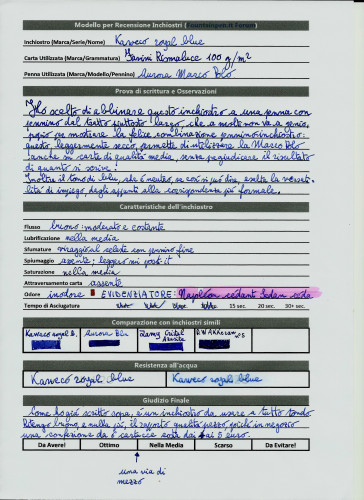 Modello per Recensione Inchiostri (Fountainpen.it Forum)
Inchiostro (Marca/Serie/Nome) Kaweco royal blue
Carta Utilizzata (Marca/Grammatura) Favini Rismaluce 100 g/m²
Penna Utilizzata (Marca/Modello/Pennino) Aurora Marco Polo
Prova di scrittura e Osservazioni
Ho scelto di abbinare questo inchiostro a una penna con
pennino del tutto piuttosto largo, che a molti non va a genio,
per mostrare la felice combinazione pennino-inchiostro:
questo, leggermente secco, permette di utilizzare la Marco Polo
anche su carte di qualità media, senza pregiudicare il risultato
di quanto si scrive!
Inoltre il tono di blu, che è neutro, se così si può dire, esalta la versati-
lità di impiego, dagli appunti alla corrispondenza più formale.
Caratteristiche dell'inchiostro
Flusso buono: moderato e costante
Lubrificazione nella media
Sfumature
Spiumaggio assente; leggero sui post-it
Saturazione nella media
Attraversamento carta assente
Odore inodore EVIDENZIATORE: Napoléon sedant Sedan cède
Tempo di Asciugatura 15 sec. 20 sec. 30+ sec.
Comparazione con inchiostri simili
Kaweco royal b. Aurora Blu Lamy
Resistenza all'acqua
Kaweco royal blue Kaweco royal blue
Giudizio Finale
Come ho già scritto sopra, è un inchiostro da usare a tutto tondo.
Ritengo buono, e nulla più, il rapporto qualità prezzo, poiché in negozio
una confezione da 6 cartucce costa dai 4 ai 5 euro.
Da Avere! Ottimo Nella Media Scarso Da Evitare!
una via di
mezzo